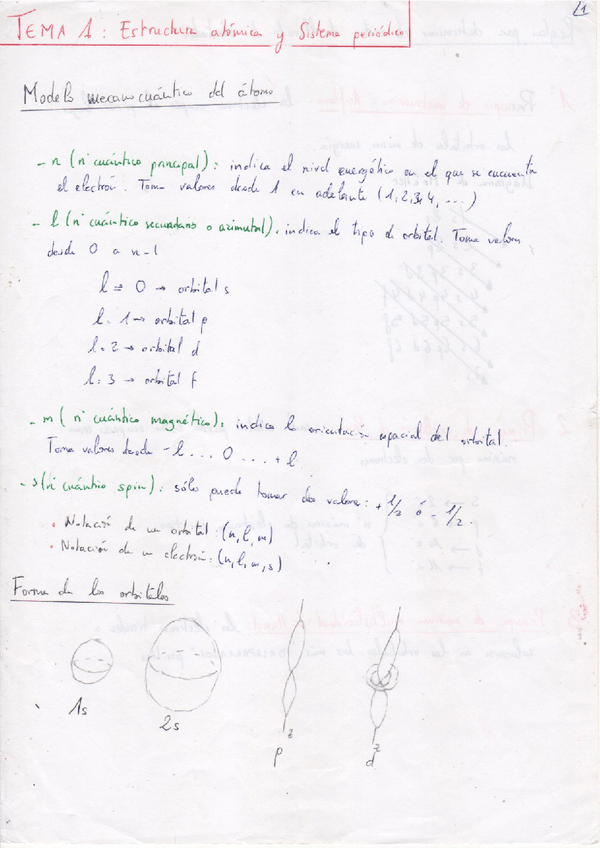 1
TEMA 1: Estructura atómica y Sistema periódico
Modelo mecanocuántico del átomo
- n (nº cuántico principal): indica el nivel energético en el que se encuentra
el electrón. Toma valores desde 1 en adelante (1, 2, 3, 4, ...)
- l (nº cuántico secundario o azimutal). indica el tipo de orbital. Toma valores
desde 0 a n-1
l = 0 → orbital s
l: 1 → orbital p
l: 2 → orbital d
l: 3 → orbital f
- m (nº cuántico magnético): indica la orientación espacial del orbital.
Toma valores desde -l ... 0 ... +l
- s (nº cuántico spin): sólo puede tomar dos valores: +1/2 ó -1/2.
• Notación de un orbital: (n, l, m)
• Notación de un electrón: (n, l, m, s)
Forma de los orbitales
1s
2s
z
p
z
d